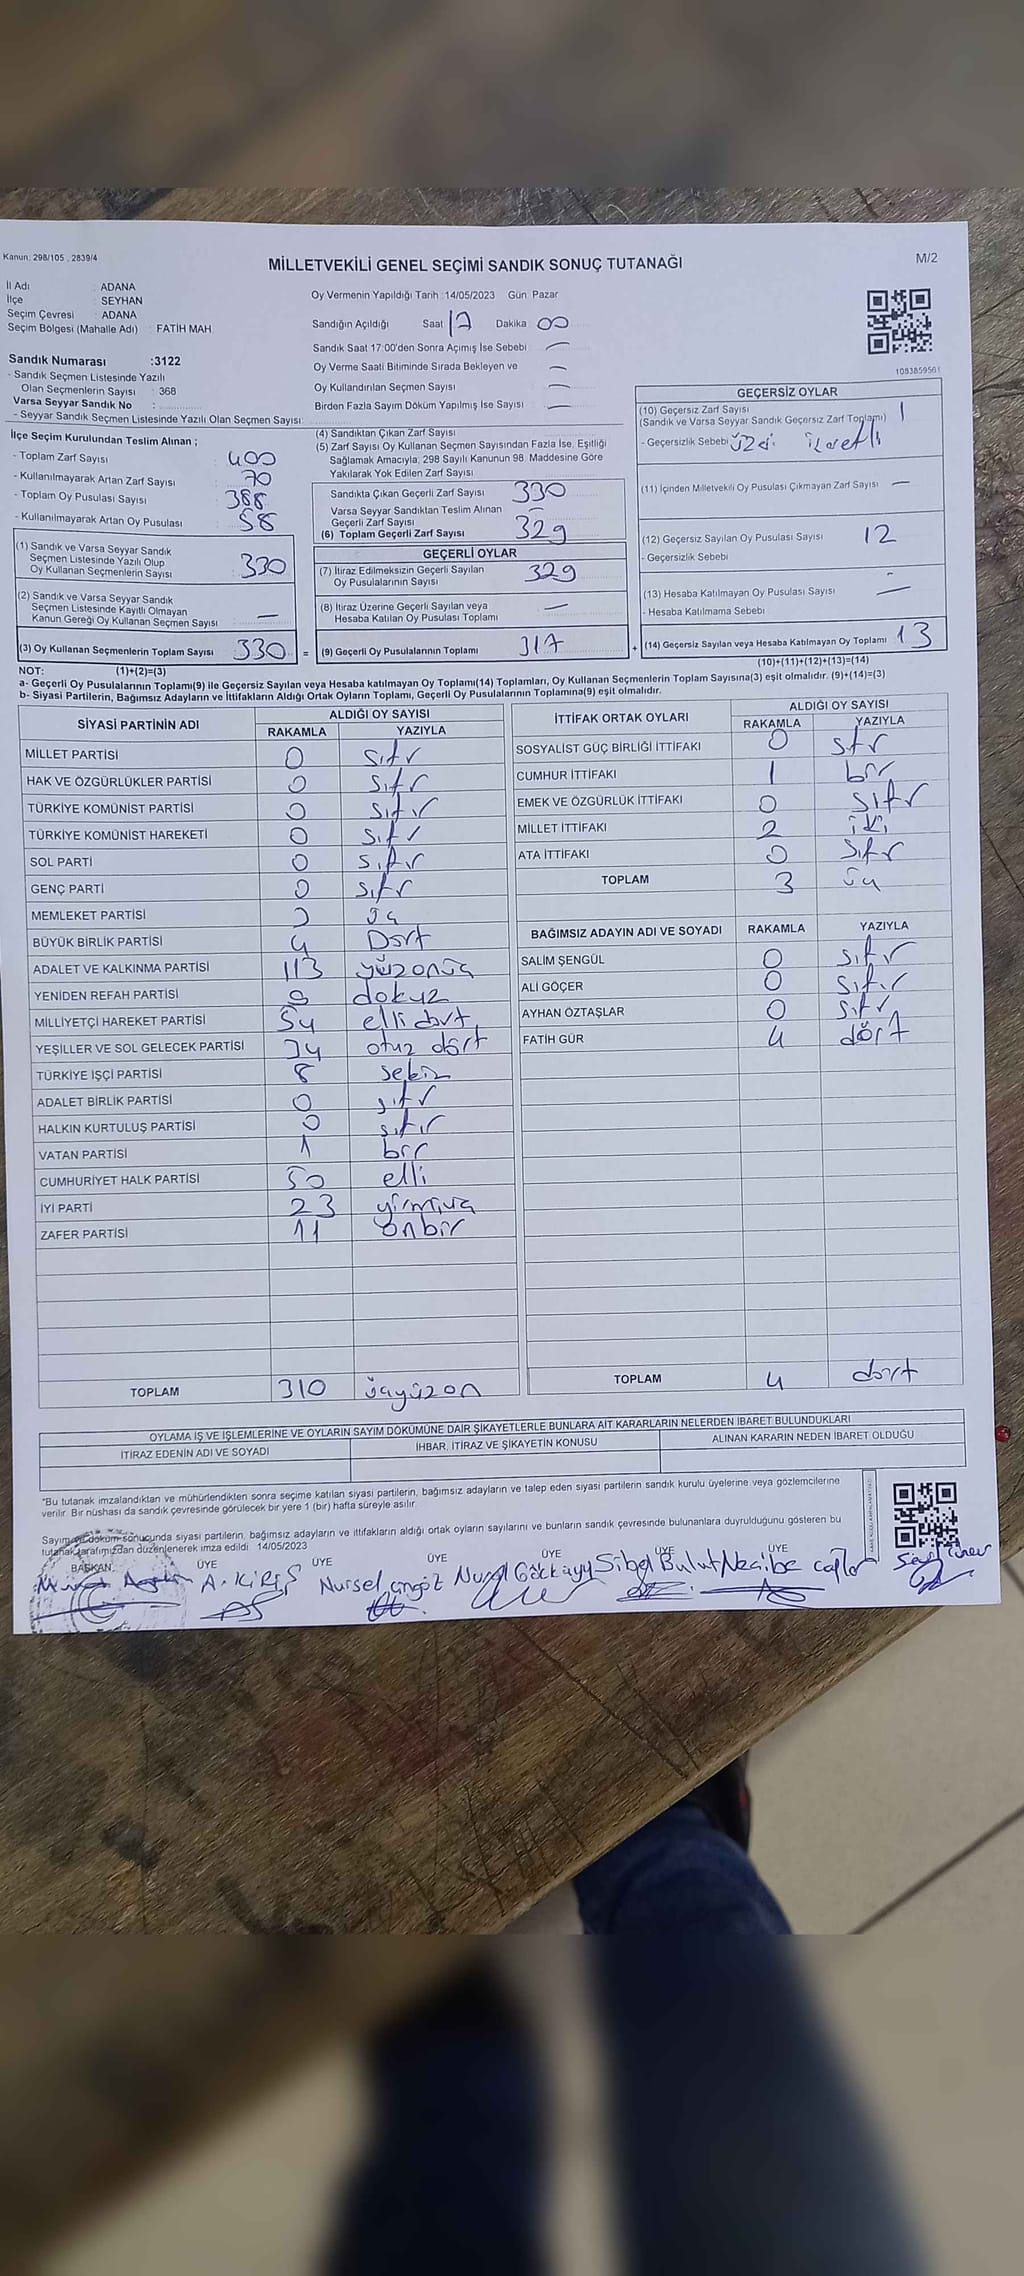 Kanun: 298/105 , 2839/4
MİLLETVEKİLİ GENEL SEÇİMİ SANDIK SONUÇ TUTANAĞI
M/2
İl Adı : ADANA
İlçe SEYHAN
Seçim Çevresi : ADANA
Seçim Bölgesi (Mahalle Adı) : FATİH MAH
Sandık Numarası :3122
- Sandık Seçmen Listesinde Yazılı
Olan Seçmenlerin Sayısı : 368
Varsa Seyyar Sandık No :
- Seyyar Sandık Seçmen Listesinde Yazılı Olan Seçmen Sayısı:
Oy Vermenin Yapıldığı Tarih :14/05/2023 Gün: Pazar
Sandığın Açıldığı Saat 17 Dakika 00
Sandık Saat 17:00'den Sonra Açımış İse Sebebi —
Oy Verme Saati Bitiminde Sırada Bekleyen ve —
Oy Kullandırılan Seçmen Sayısı —
Birden Fazla Sayım Döküm Yapılmış İse Sayısı —
1083859561
İlçe Seçim Kurulundan Teslim Alınan ;
- Toplam Zarf Sayısı : 400
- Kullanılmayarak Artan Zarf Sayısı : 70
- Toplam Oy Pusulası Sayısı : 388
- Kullanılmayarak Artan Oy Pusulası : 58
(1) Sandık ve Varsa Seyyar Sandık
Seçmen Listesinde Yazılı Olup
Oy Kullanan Seçmenlerin Sayısı : 330
(2) Sandık ve Varsa Seyyar Sandık
Seçmen Listesinde Kayıtlı Olmayan
Kanun Gereği Oy Kullanan Seçmen Sayısı : —
(3) Oy Kullanan Seçmenlerin Toplam Sayısı : 330 =
(4) Sandıktan Çıkan Zarf Sayısı
(5) Zarf Sayısı Oy Kullanan Seçmen Sayısından Fazla İse, Eşitliği
Sağlamak Amacıyla, 298 Sayılı Kanunun 98. Maddesine Göre
Yakılarak Yok Edilen Zarf Sayısı
Sandıkta Çıkan Geçerli Zarf Sayısı 330
Varsa Seyyar Sandıktan Teslim Alınan
Geçerli Zarf Sayısı —
(6) Toplam Geçerli Zarf Sayısı 329
GEÇERLİ OYLAR
(7) İtiraz Edilmeksizin Geçerli Sayılan
Oy Pusulalarının Sayısı 329
(8) İtiraz Üzerine Geçerli Sayılan veya
Hesaba Katılan Oy Pusulası Toplamı —
(9) Geçerli Oy Pusulalarının Toplamı 317 +
GEÇERSİZ OYLAR
(10) Geçersiz Zarf Sayısı 1
(Sandık ve Varsa Seyyar Sandık Geçersiz Zarf Toplamı)
- Geçersizlik Sebebi üzeri işaretli
(11) İçinden Milletvekili Oy Pusulası Çıkmayan Zarf Sayısı —
(12) Geçersiz Sayılan Oy Pusulası Sayısı 12
- Geçersizlik Sebebi
(13) Hesaba Katılmayan Oy Pusulası Sayısı —
- Hesaba Katılmama Sebebi —
(14) Geçersiz Sayılan veya Hesaba Katılmayan Oy Toplamı 13
NOT: (1)+(2)=(3)
(10)+(11)+(12)+(13)=(14)
a- Geçerli Oy Pusulalarının Toplamı(9) ile Geçersiz Sayılan veya Hesaba katılmayan Oy Toplamı(14) Toplamları, Oy Kullanan Seçmenlerin Toplam Sayısına(3) eşit olmalıdır. (9)+(14)=(3)
b- Siyasi Partilerin, Bağımsız Adayların ve İttifakların Aldığı Ortak Oyların Toplamı, Geçerli Oy Pusulalarının Toplamına(9) eşit olmalıdır.
SİYASİ PARTİNİN ADI ALDIĞI OY SAYISI
RAKAMLA YAZIYLA
MİLLET PARTİSİ 0 sıfır
HAK VE ÖZGÜRLÜKLER PARTİSİ 0 sıfır
TÜRKİYE KOMÜNİST PARTİSİ 0 sıfır
TÜRKİYE KOMÜNİST HAREKETİ 0 sıfır
SOL PARTİ 0 sıfır
GENÇ PARTİ 0 sıfır
MEMLEKET PARTİSİ 3 üç
BÜYÜK BİRLİK PARTİSİ 4 Dört
ADALET VE KALKINMA PARTİSİ 113 yüzonüç
YENİDEN REFAH PARTİSİ 9 dokuz
MİLLİYETÇİ HAREKET PARTİSİ 54 elli dört
YEŞİLLER VE SOL GELECEK PARTİSİ 34 otuz dört
TÜRKİYE İŞÇİ PARTİSİ 8 sekiz
ADALET BİRLİK PARTİSİ 0 sıfır
HALKIN KURTULUŞ PARTİSİ 0 sıfır
VATAN PARTİSİ 1 bir
CUMHURİYET HALK PARTİSİ 50 elli
İYİ PARTİ 23 yirmiüç
ZAFER PARTİSİ 11 onbir
TOPLAM 310 üçyüzon
İTTİFAK ORTAK OYLARI ALDIĞI OY SAYISI
RAKAMLA YAZIYLA
SOSYALİST GÜÇ BİRLİĞİ İTTİFAKI 0 sıfır
CUMHUR İTTİFAKI 1 bir
EMEK VE ÖZGÜRLÜK İTTİFAKI 0 sıfır
MİLLET İTTİFAKI 2 iki
ATA İTTİFAKI 0 sıfır
TOPLAM 3 üç
BAĞIMSIZ ADAYIN ADI VE SOYADI RAKAMLA YAZIYLA
SALİM ŞENGÜL 0 sıfır
ALİ GÖÇER 0 sıfır
AYHAN ÖZTAŞLAR 0 sıfır
FATİH GÜR 4 dört
TOPLAM 4 dört
OYLAMA İŞ VE İŞLEMLERİNE VE OYLARIN SAYIM DÖKÜMÜNE DAİR ŞİKAYETLERLE BUNLARA AİT KARARLARIN NELERDEN İBARET BULUNDUKLARI
İTİRAZ EDENİN ADI VE SOYADI İHBAR, İTİRAZ VE ŞİKAYETİN KONUSU ALINAN KARARIN NEDEN İBARET OLDUĞU
"Bu tutanak imzalandıktan ve mühürlendikten sonra seçime katılan siyasi partilerin, bağımsız adayların ve talep eden siyasi partilerin sandık kurulu üyelerine veya gözlemcilerine
verilir. Bir nüshası da sandık çevresinde görülecek bir yere 1 (bir) hafta süreyle asılır.
Sayım ve döküm sonucunda siyasi partilerin, bağımsız adayların ve ittifakların aldığı ortak oyların sayılarını ve bunların sandık çevresinde bulunanlara duyrulduğunu gösteren bu
tutanak tarafımızdan düzenlenerek imza edildi. 14/05/2023
BAŞKAN ÜYE ÜYE ÜYE ÜYE ÜYE
A. KİRİŞ Nursel Nural Gökkaya Sibel Bulut Necibe